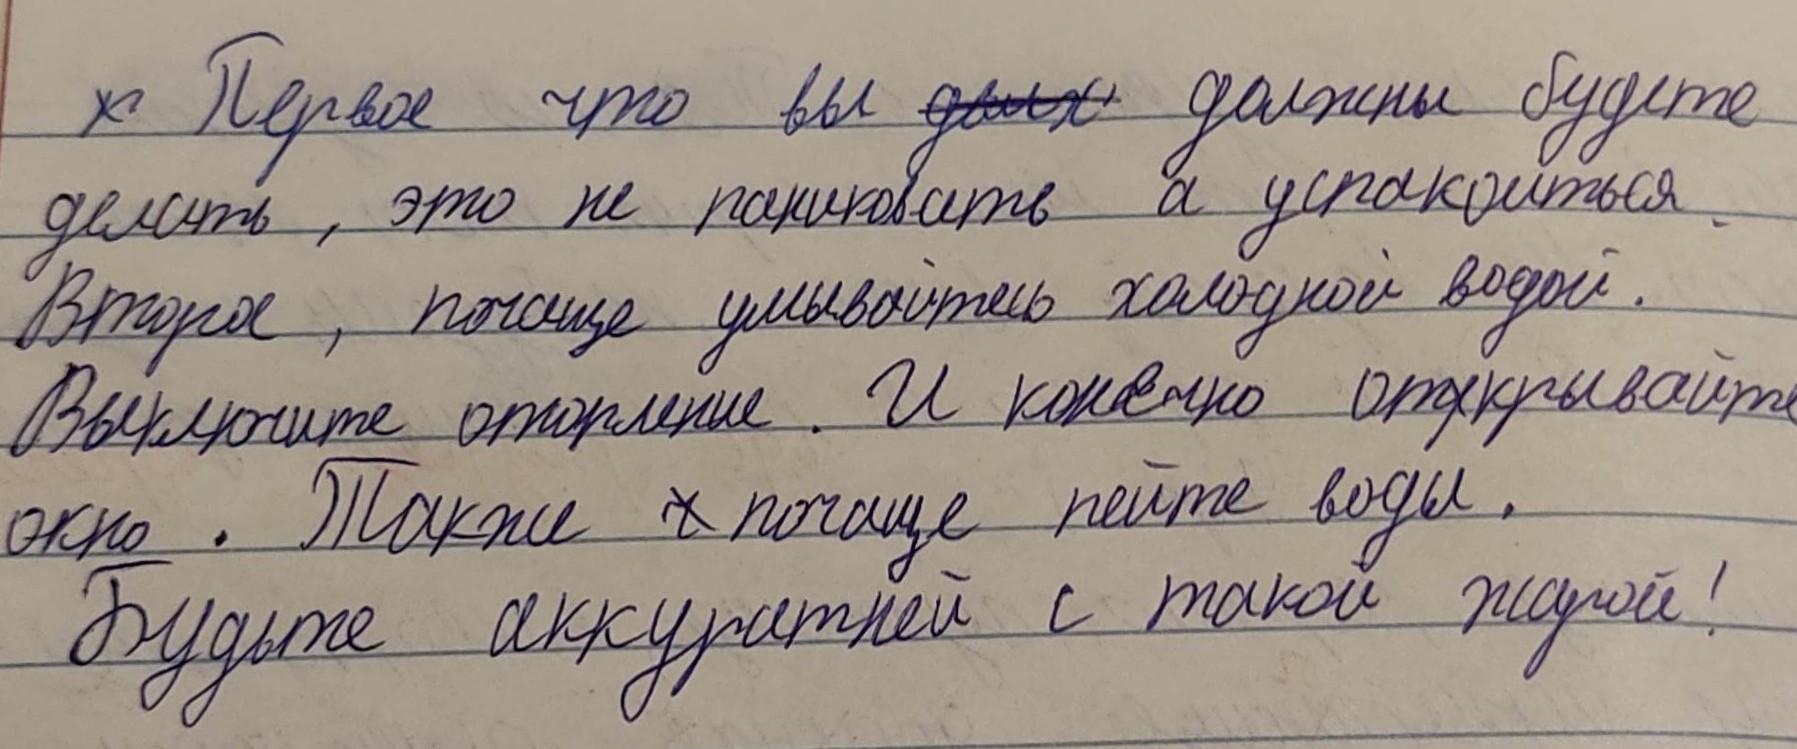 Первое что вы должны будете
делать, это не паниковать а успакоиться.
Второе, почаще умывайтесь холодной водой.
Выключите отопление. И конечно открывайте
окно. Также почаще пейте воды.
Будьте аккуратней с такой жарой!